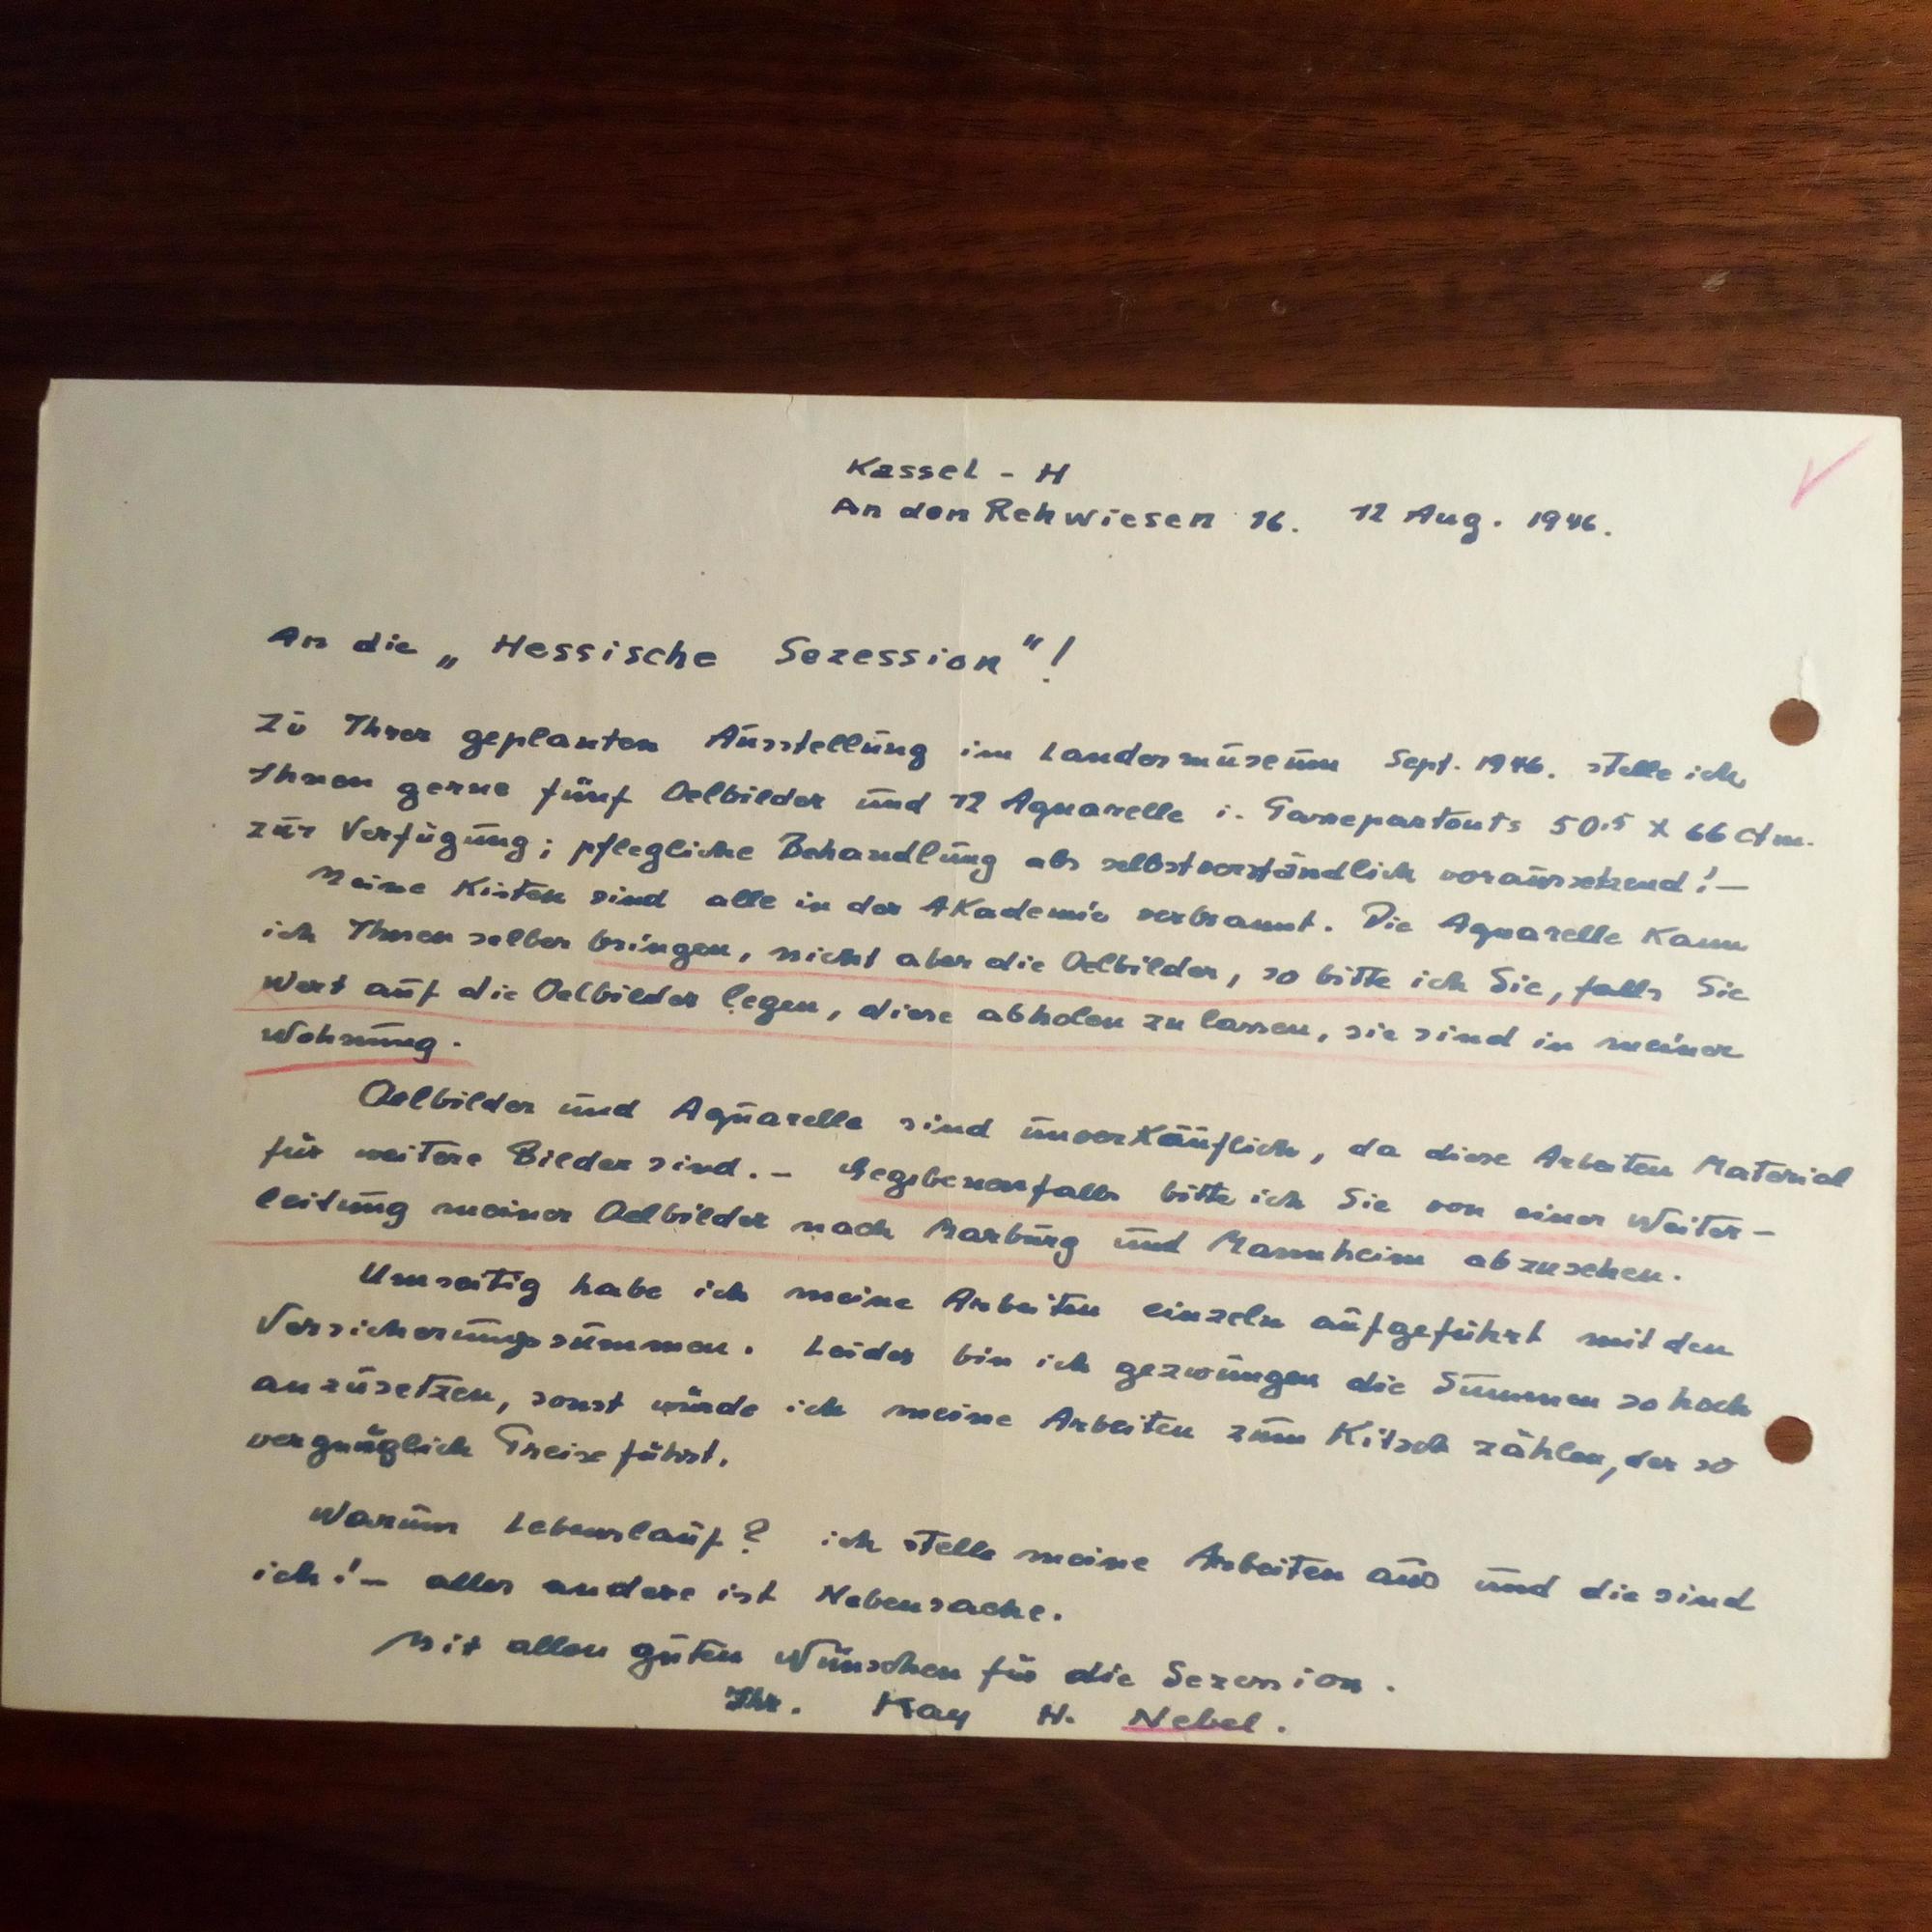 Kassel - H
An den Rehwiesen 16. 12 Aug. 1946.
An die „Hessische Sezession"!
Zu Ihrer geplanten Ausstellung im Landesmuseum Sept. 1946. stelle ich
Ihnen gerne fünf Oelbilder und 12 Aquarelle i. Passepartouts 50.5 x 66 ctm.
zur Verfügung; pflegliche Behandlung als selbstverständlich voraussetzend! —
Meine Kisten sind alle in der Akademie verbrannt. Die Aquarelle kann
ich Ihnen selber bringen, nicht aber die Oelbilder, so bitte ich Sie, falls Sie
Wert auf die Oelbilder legen, diese abholen zu lassen, sie sind in meiner
Wohnung.
Oelbilder und Aquarelle sind unverkäuflich, da diese Arbeiten Material
für weitere Bilder sind. — Gegebenenfalls bitte ich Sie von einer Weiter-
leitung meiner Oelbilder nach Marburg und Mannheim abzusehen.
Umseitig habe ich meine Arbeiten einzeln aufgeführt mit den
Versicherungssummen. Leider bin ich gezwungen die Summen so hoch
anzusetzen, sonst würde ich meine Arbeiten zum Kitsch zählen, der so
vergnüglich Preise führt.
Warum Lebenslauf? ich stelle meine Arbeiten aus und die sind
ich! — alles andere ist Nebensache.
Mit allen guten Wünschen für die Sezession.
Ihr. Kay H. Nebel.